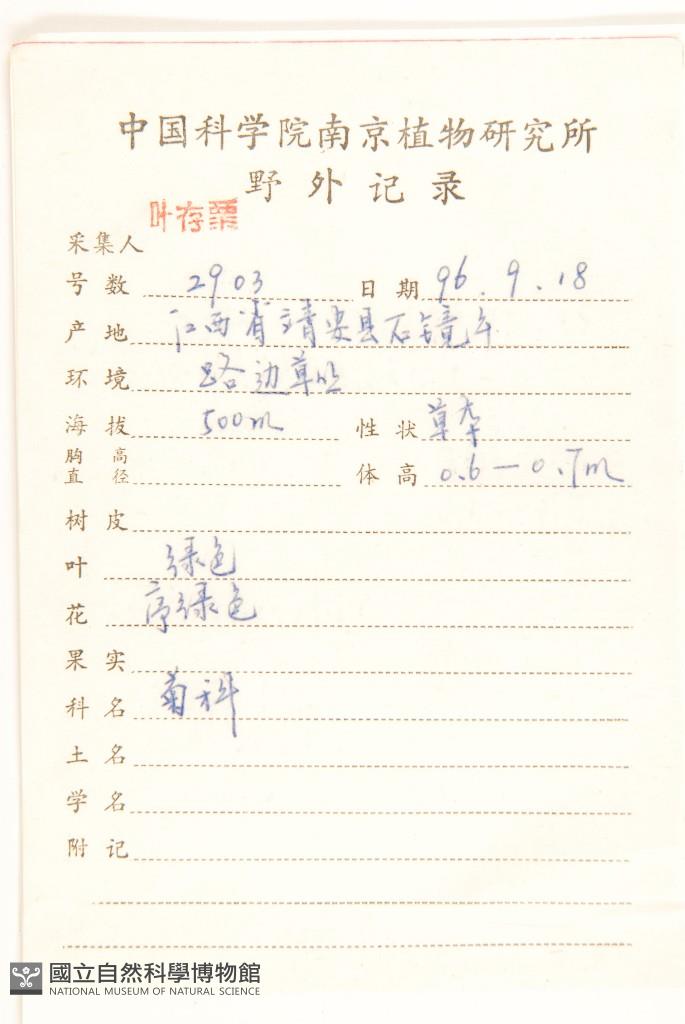 中国科学院南京植物研究所
野外记录
叶存粟
采集人
号数 2903 日期 96.9.18
产地 江西省靖安县石镜
环境 路边草丛
海拔 500m 性状 草本
胸高直径 体高 0.6—0.7m
树皮
叶 绿色
花 序绿色
果实
科名 菊科
土名
学名
附记
國立自然科學博物館
NATIONAL MUSEUM OF NATURAL SCIENCE